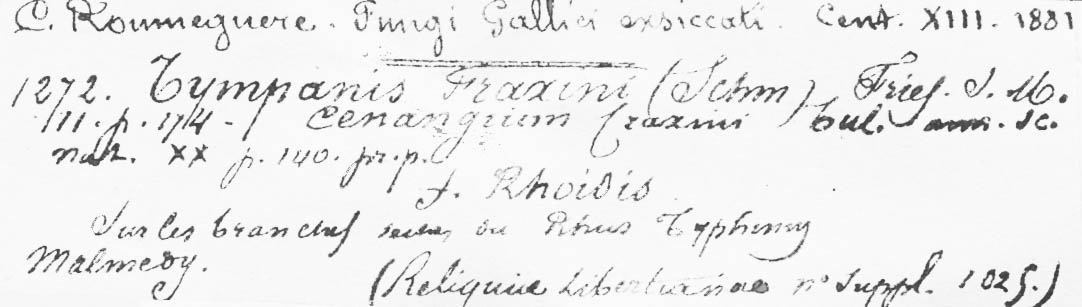 C. Roumeguere. Fungi Gallici exsiccati. Cent. XIII. 1881
1272. Tympanis Fraxini (Schm) Fries. S. M.
111. p. 174 - Cenangium fraxini Tul. ann. sc.
nat. XX p. 140. pr. p.
f. Rhoidis
Sur les branches seches du Rhus Typhinum
Malmedy.
(Reliquiae Libertianae n° suppl. 1025.)